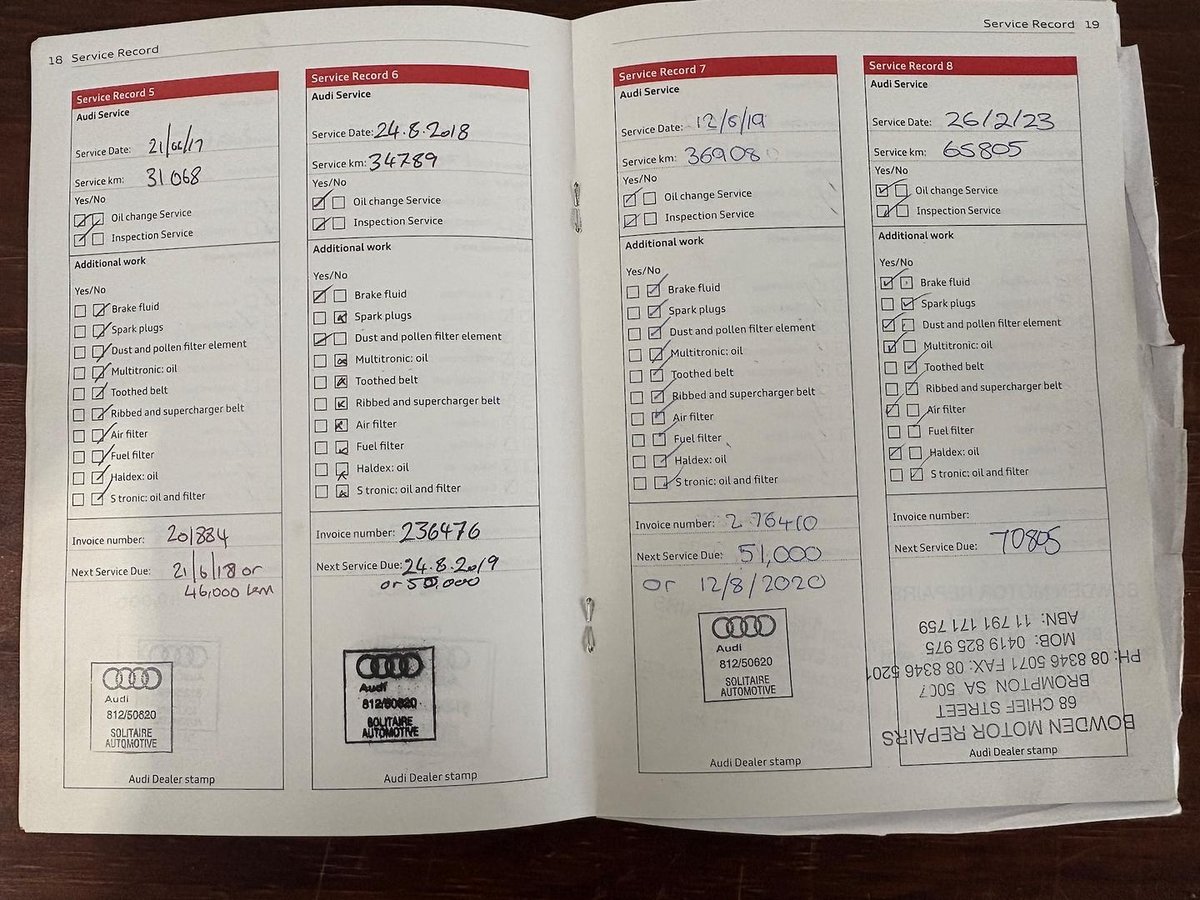 18 Service Record
Service Record 5
Audi Service
Service Date: 21/06/17
Service km: 31068
Yes/No
Oil change Service
Inspection Service
Additional work
Yes/No
Brake fluid
Spark plugs
Dust and pollen filter element
Multitronic: oil
Toothed belt
Ribbed and supercharger belt
Air filter
Fuel filter
Haldex: oil
S tronic: oil and filter
Invoice number: 201884
Next Service Due: 21/6/18 or
46,000 km
Audi
812/50620
SOLITAIRE
AUTOMOTIVE
Audi Dealer stamp
Service Record 6
Audi Service
Service Date: 24.8.2018
Service km: 34789
Yes/No
Oil change Service
Inspection Service
Additional work
Yes/No
Brake fluid
Spark plugs
Dust and pollen filter element
Multitronic: oil
Toothed belt
Ribbed and supercharger belt
Air filter
Fuel filter
Haldex: oil
S tronic: oil and filter
Invoice number: 236476
Next Service Due: 24.8.2019
or 50,000
Audi
812/50620
SOLITAIRE
AUTOMOTIVE
Audi Dealer stamp
Service Record 19
Service Record 7
Audi Service
Service Date: 12/8/19
Service km: 36908
Yes/No
Oil change Service
Inspection Service
Additional work
Yes/No
Brake fluid
Spark plugs
Dust and pollen filter element
Multitronic: oil
Toothed belt
Ribbed and supercharger belt
Air filter
Fuel filter
Haldex: oil
S tronic: oil and filter
Invoice number: 276410
Next Service Due: 51,000
or 12/8/2020
Audi
812/50620
SOLITAIRE
AUTOMOTIVE
Audi Dealer stamp
Service Record 8
Audi Service
Service Date: 26/2/23
Service km: 65805
Yes/No
Oil change Service
Inspection Service
Additional work
Yes/No
Brake fluid
Spark plugs
Dust and pollen filter element
Multitronic: oil
Toothed belt
Ribbed and supercharger belt
Air filter
Fuel filter
Haldex: oil
S tronic: oil and filter
Invoice number:
Next Service Due: 70805
BOWDEN MOTOR REPAIRS
68 CHIEF STREET
BROMPTON SA 5007
PH: 08 8346 5071 FAX: 08 8346 5201
MOB: 0419 825 975
ABN: 11 791 171 759
Audi Dealer stamp